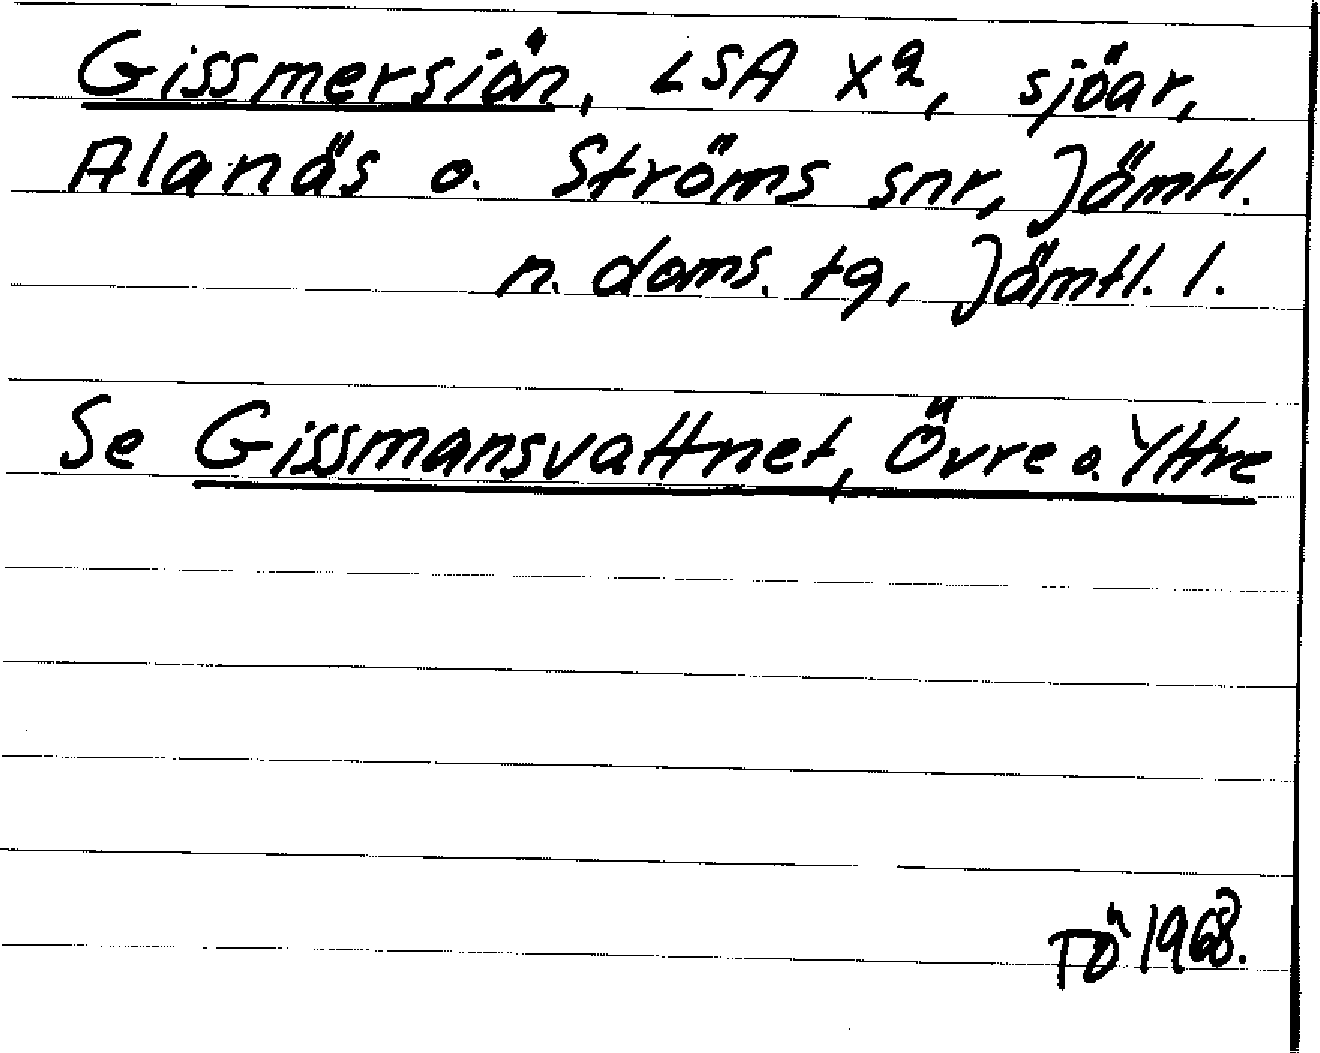 Gissmersiön, LSA X9, sjöar,
Alanäs o. Ströms snr, Jämtl.
n. doms. tg, Jämtl. l.
Se Gissmansvattnet, Övre o. Yttre
TÖ 1968.